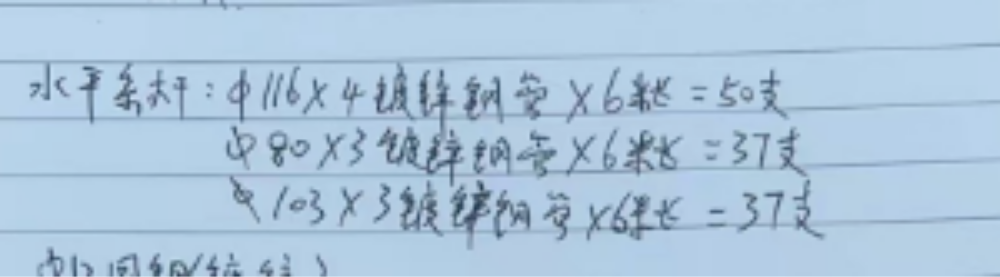 水平系杆：φ116×4镀锌钢管×6米长=50支
φ80×3镀锌钢管×6米长=37支
φ103×3镀锌钢管×6米长=37支